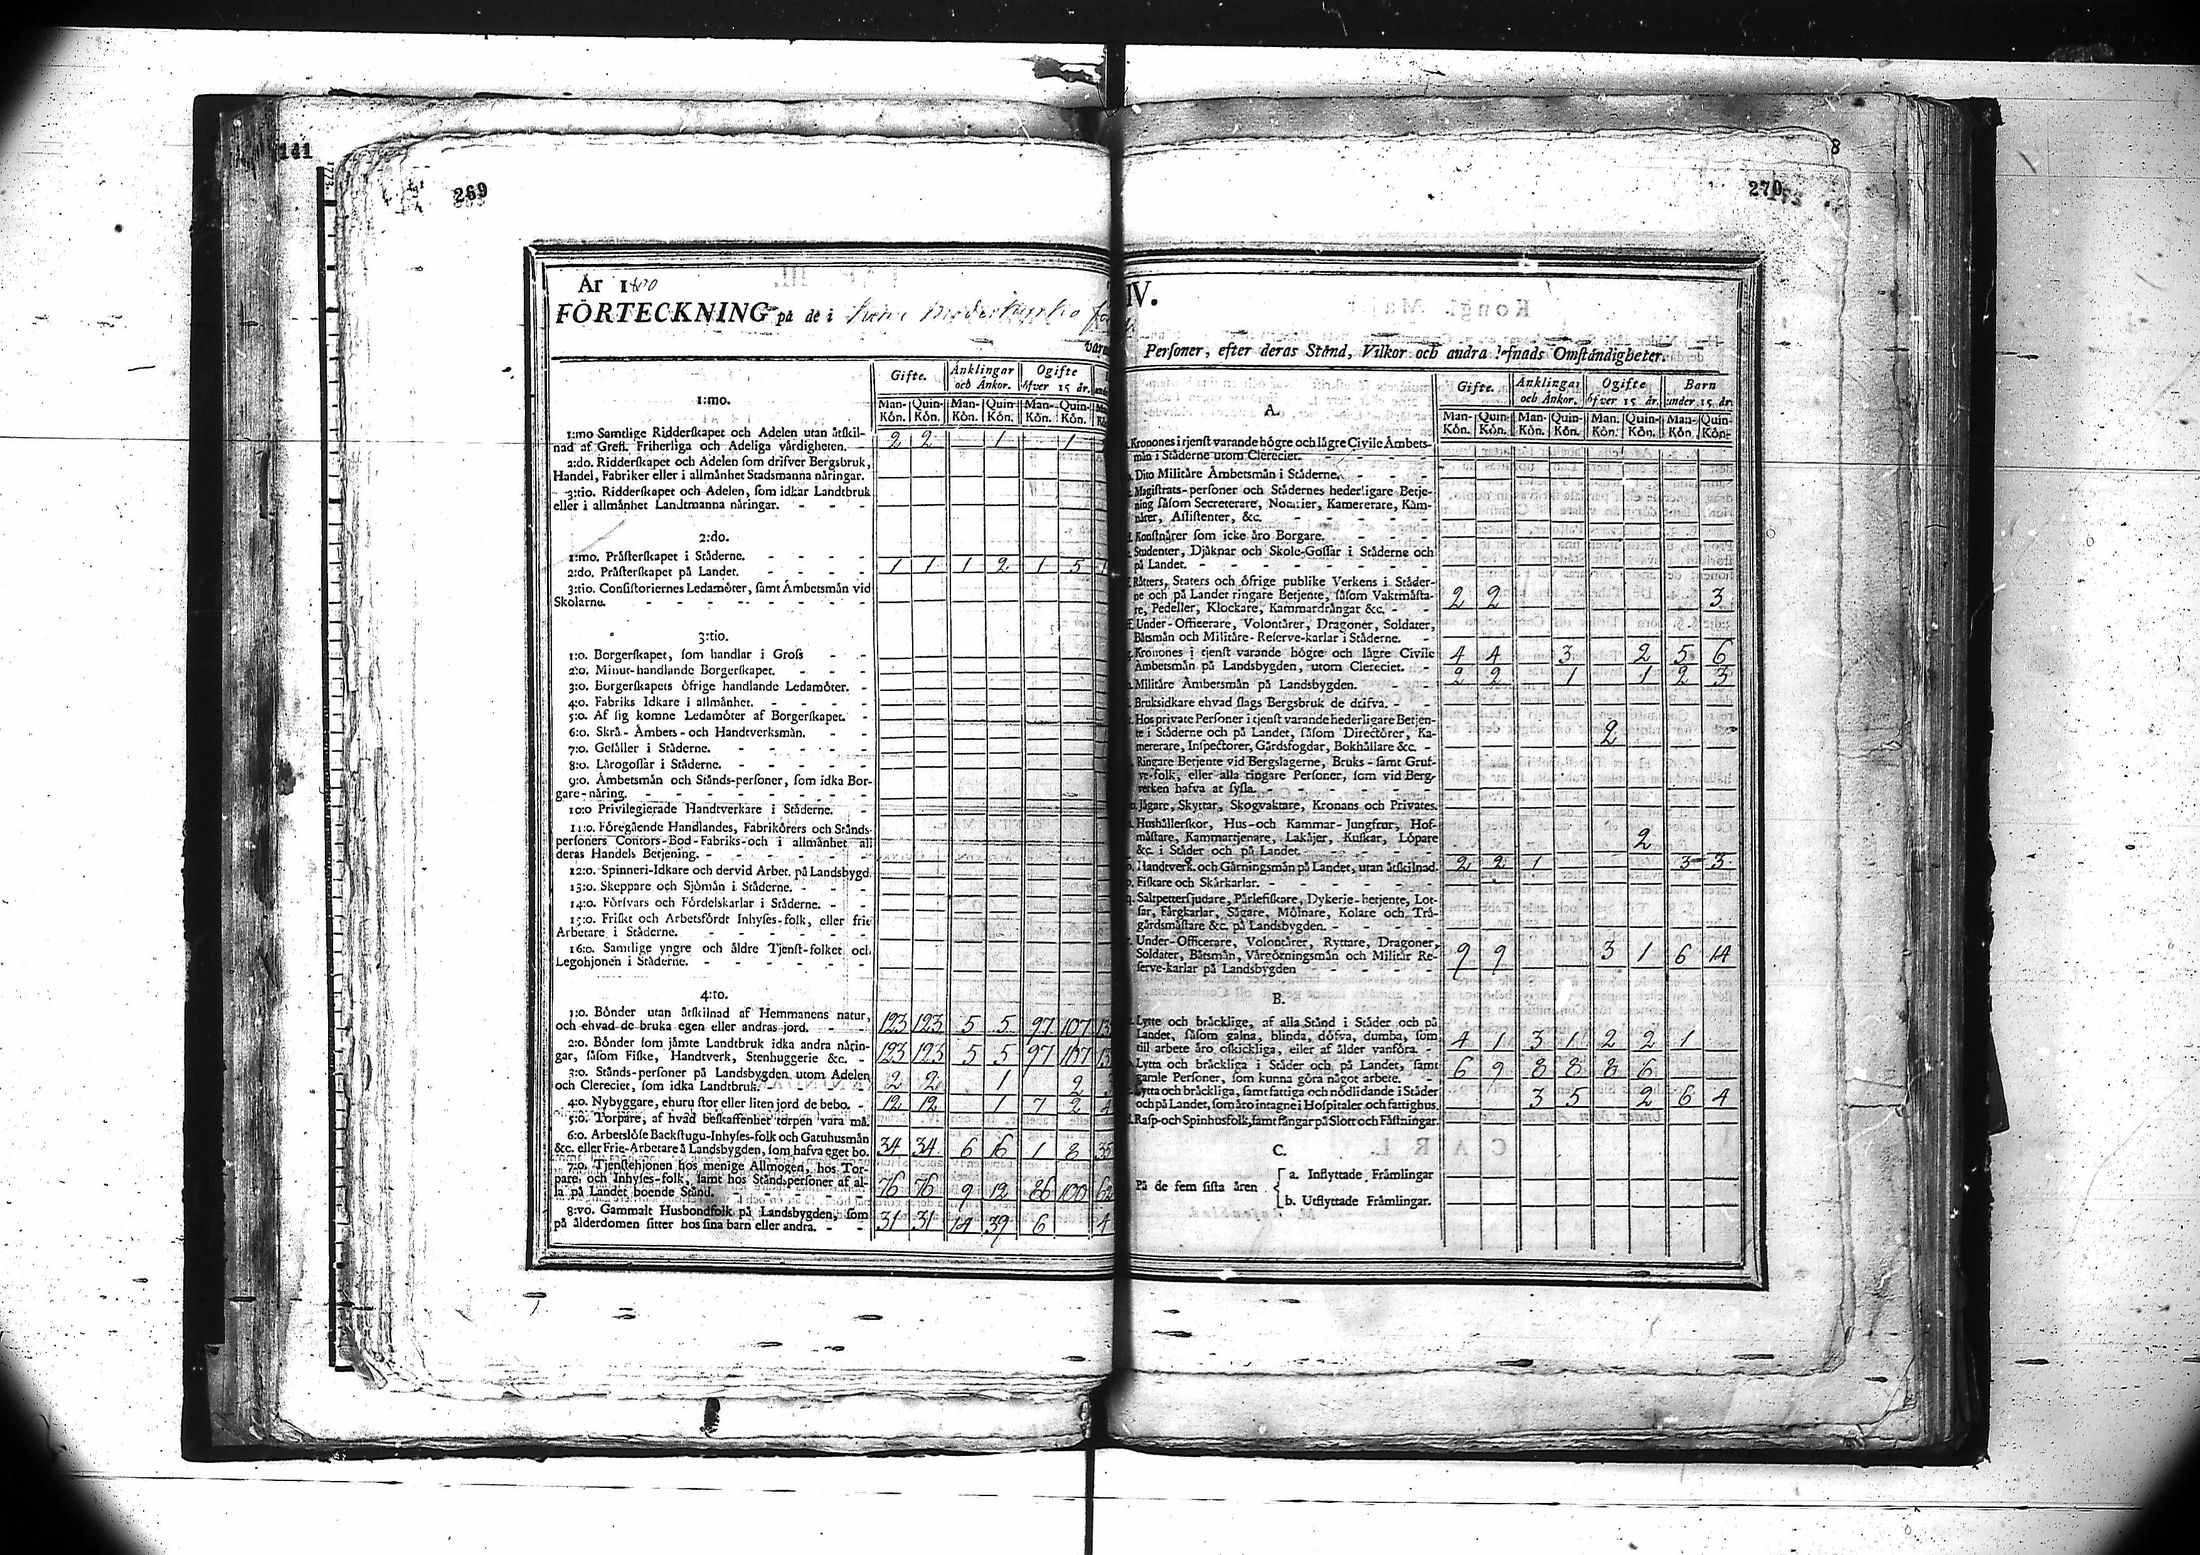 141
269
År 1800
FÖRTECKNING på de i
varu
Gifte. Änklingar och Änkor. Ogifte öfver 15 år.
Man-Kön. Quin-Kön. Man-Kön. Quin-Kön. Man-Kön. Quin-Kön.
1:mo.
1:mo Samtlige Ridderskapet och Adelen utan åtskil-
nad af Grefl. Friherliga och Adeliga värdigheten. 2 2 1 1
2:do. Ridderskapet och Adelen som drifver Bergsbruk,
Handel, Fabriker eller i allmänhet Stadsmanna näringar.
3:tio. Ridderskapet och Adelen, som idkar Landtbruk
eller i allmänhet Landtmanna näringar.
2:do.
1:mo. Prästerskapet i Städerne.
2:do. Prästerskapet på Landet. 1 1 1 2 1 5 1
3:tio. Consistoriernes Ledamöter, samt Ämbetsmän vid
Skolarne.
3:tio.
1:o. Borgerskapet, som handlar i Gross
2:o. Minut-handlande Borgerskapet.
3:o. Borgerskapets öfrige handlande Ledamöter.
4:o. Fabriks Idkare i allmänhet.
5:o. Af sig komne Ledamöter af Borgerskapet.
6:o. Skrå- Ämbets- och Handtverksmän.
7:o. Gesäller i Städerne.
8:o. Lärogossar i Städerne.
9:o. Ämbetsmän och Stånds-personer, som idka Bor-
gare-näring.
10:o Privilegierade Handtverkare i Städerne.
11:o. Föregående Handlandes, Fabrikörers och Stånds-
personers Contors-Bod-Fabriks-och i allmänhet all
deras Handels Betjening.
12:o. Spinneri-Idkare och dervid Arbet. på Landsbygd.
13:o. Skeppare och Sjömän i Städerne.
14:o. Försvars och Fördelskarlar i Städerne.
15:o. Friskt och Arbetsfördt Inhyses-folk, eller frie
Arbetare i Städerne.
16:o. Samtlige yngre och äldre Tjenst-folket och
Legohjonen i Städerne.
4:to.
1:o. Bönder utan åtskilnad af Hemmanens natur,
och ehvad de bruka egen eller andras jord. 123 123 5 5 97 107
2:o. Bönder som jämte Landtbruk idka andra närin-
gar, såsom Fiske, Handtverk, Stenhuggerie &c. 123 123 5 5 97 107
3:o. Stånds-personer på Landsbygden utom Adelen
och Clereciet, som idka Landtbruk. 2 2 1 2
4:o. Nybyggare, ehuru stor eller liten jord de bebo. 12 12 1 7 2 4
5:o. Torpare, af hvad beskaffenhet torpen vara må.
6:o. Arbetslöse Backstugu-Inhyses-folk och Gatuhusmän
&c. eller Frie-Arbetare å Landsbygden, som hafva eget bo. 34 34 6 16 1 8 35
7:o. Tjenstehjonen hos menige Allmogen, hos Tor-
pare, och Inhyses-folk, samt hosStåndspersoner af al-
la på Landet boende Stånd. 76 76 9 12 86 100 62
8:vo. Gammalt Husbondfolk på Landsbygden, som
på ålderdomen sitter hos sina barn eller andra. 31 31 14 39 6 4
8
270
IV.
Personer, efter deras Stånd, Vilkor och andra lefnads Omständigheter.
Gifte. Änklingar och Änkor. Ogifte öfver 15 år. Barn under 15 år.
Man-Kön. Quin-Kön. Man-Kön. Quin-Kön. Man-Kön. Quin-Kön. Man-Kön. Quin-Kön.
A.
Kronones i tjenst varande högre och lägre Civile Ämbets-
män i Städerne utom Clereciet.
Dito Militäre Ämbetsmän i Städerne.
Magistrats-personer och Städernes hederligare Betje-
ning såsom Secreterare, Notarier, Kamererare, Käm-
närer, Assistenter, &c.
Konstnärer som icke äro Borgare.
Studenter, Djäknar och Skole-Gossar i Städerne och
på Landet.
Rätters, Staters och öfrige publike Verkens i Städer-
ne och på Landet ringare Betjente, såsom Vaktmästa-
re, Pedeller, Klockare, Kammardrängar &c. 2 2 3
Under-Officerare, Volontärer, Dragoner, Soldater,
Båtsmän och Militäre-Reserve-karlar i Städerne.
Kronones i tjenst varande högre och lägre Civile
Ämbetsmän på Landsbygden, utom Clereciet. 4 4 3 2 5 6
Militäre Ämbetsmän på Landsbygden. 2 2 1 1 2 3
Bruksidkare ehvad slags Bergsbruk de drifva.
Hos private Personer i tjenst varande hederligare Betjen-
te i Städerne och på Landet, såsom Directörer, Ka-
mererare, Inspectorer, Gårdsfogdar, Bokhållare &c. 2
Ringare Betjente vid Bergslagerne, Bruks- samt Gruf-
ve-folk, eller alla ringare Personer, som vid Berg-
verken hafva at syssla.
Jägare, Skyttar, Skogvaktare, Kronans och Privates.
Hushållerskor, Hus-och Kammar-Jungfrur, Hof-
mästare, Kammartjenare, Lakäjer, Kuskar, Löpare
&c. i Städer och på Landet. 2
Handtverk och Gärningsmän på Landet, utan åtskilnad. 2 2 1 3 3
Fiskare och Skärkarlar.
Saltpettersjudare, Pärlefiskare, Dykerie-betjente, Lot-
sar, Färgkarlar, Sågare, Mölnare, Kolare och Trä-
gårdsmästare &c. på Landsbygden.
Under-Officerare, Volontärer, Ryttare, Dragoner,
Soldater, Båtsmän, Vargöringsmän och Militär Re-
serve-karlar på Landsbygden 9 9 3 1 6 14
B.
Lytte och bräcklige, af alla Stånd i Städer och på
Landet, såsom galna, blinda, döfva, dumba, som
till arbete äro oskickliga, eller af ålder vanföra. 4 1 3 1 2 2 1
Lytta och bräckliga i Städer och på Landet, samt
gamle Personer, som kunna göra något arbete. 6 9 8 8 8 6
Lytta och bräckliga, samt fattiga och nödlidande i Städer
och på Landet, som äro intagne i Hospitaler och fattighus. 3 5 2 6 4
Rasp-och Spinhusfolk, samt fångar på Slott och Fästningar.
C.
På de fem sista åren
a. Inflyttade Främlingar
b. Utflyttade Främlingar.